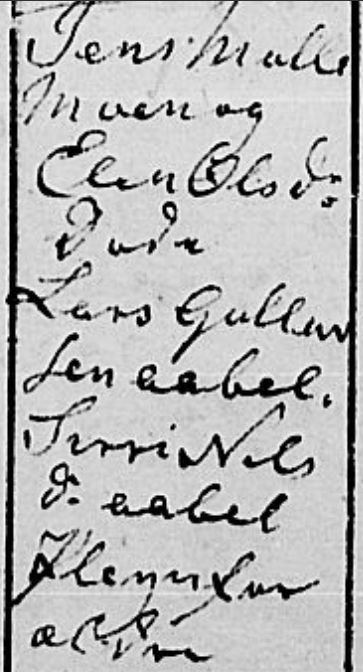 Jens Malle
Moen og
Elen Olsd:
Dode
Lars Gullav
sen aabel.
Sirri Nels
d. aabel